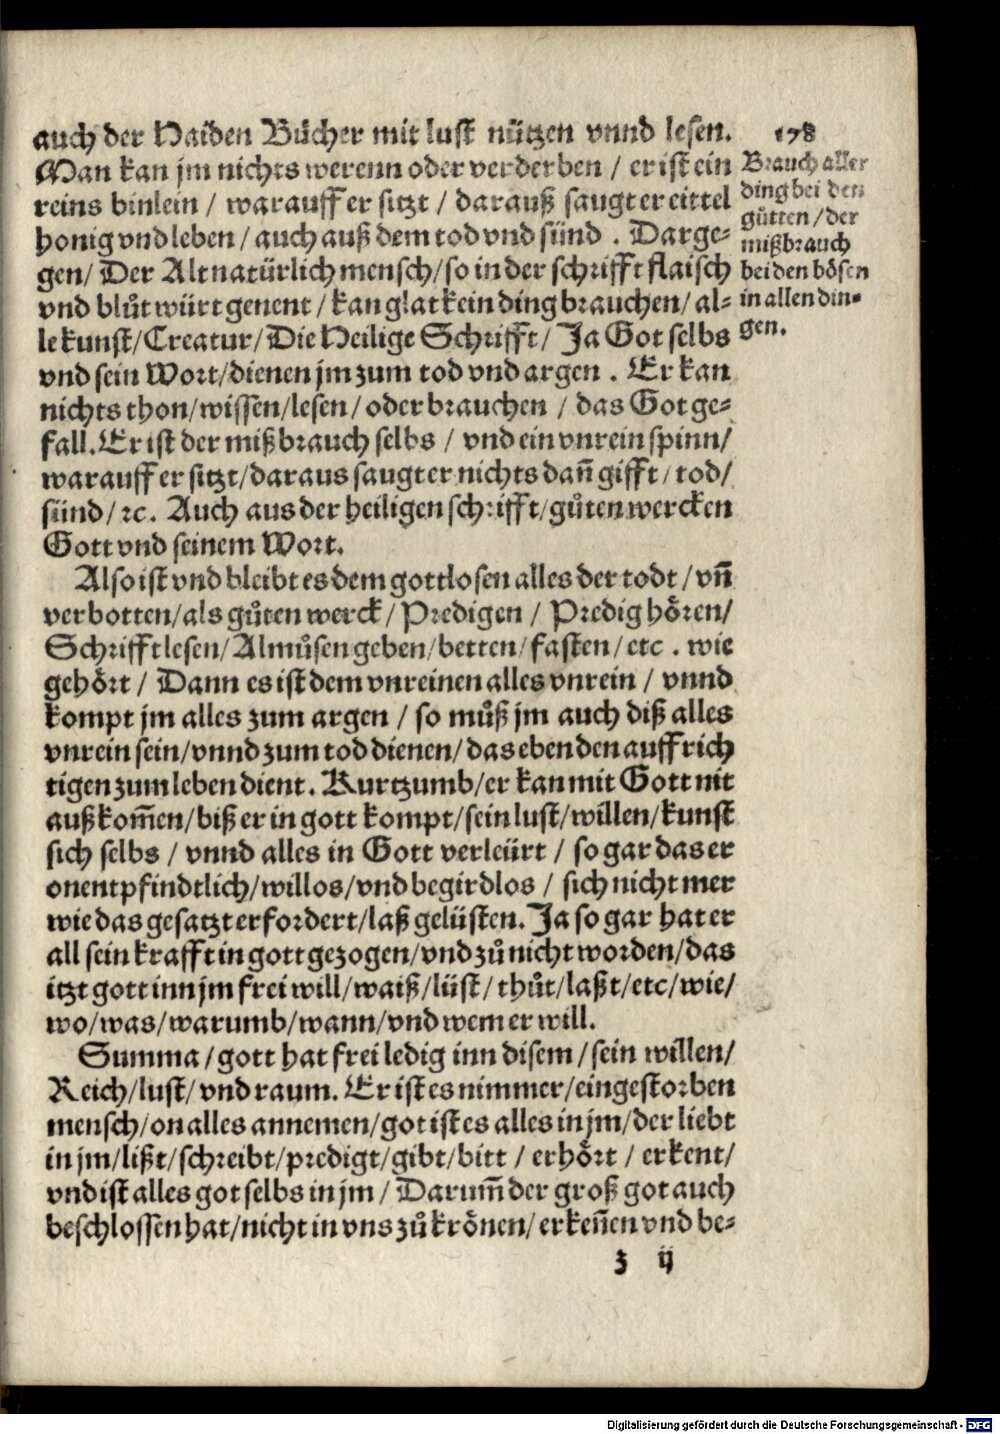 auch der Haiden Bücher mit lust nützen vnnd lesen.
178
Man kan jm nichts werenn oder verderben / er ist ein
reins binlein / warauff er sitzt / darauß saugt er eittel
honig vnd leben / auch auß dem tod vnd sünd . Darge⸗
gen / Der Alt natürlich mensch / so in der schrifft flaisch
vnd blůt würt genent / kan glat kein ding brauchen / al⸗
le kunst / Creatur / Die Heilige Schrifft / Ja Got selbs
vnd sein Wort / dienen jm zum tod vnd argen . Er kan
nichts thon / wissen / lesen / oder brauchen / das Got ge⸗
fall. Er ist der mißbrauch selbs / vnd ein vnrein spinn /
warauff er sitzt / daraus saugt er nichts dañ gifft / tod /
sünd / ꝛc. Auch aus der heiligen schrifft / gůten wercken
Gott vnd seinem Wort.
Brauch aller
ding bei den
gütten / der
mißbrauch
bei den bösen
in allen din⸗
gen.
Also ist vnd bleibt es dem gottlosen alles der todt / vñ
verbotten / als gůten werck / Predigen / Predig hören /
Schrifft lesen / Almůsen geben / betten / fasten / etc . wie
gehört / Dann es ist dem vnreinen alles vnrein / vnnd
kompt jm alles zum argen / so můß jm auch diß alles
vnrein sein / vnnd zum tod dienen / das eben den auffrich
tigen zum leben dient. Kurtzumb / er kan mit Gott nit
außkom̃en / biß er in gott kompt / sein lust / willen / kunst
sich selbs / vnnd alles in Gott verleürt / so gar das er
onentpfindtlich / willos / vnd begirdlos / sich nicht mer
wie das gesatzt erfordert / laß gelüsten. Ja so gar hat er
all sein krafft in gott gezogen / vnd zů nicht worden / das
itzt gott inn jm frei will / waiß / lüst / thůt / laßt / etc / wie /
wo / was / warumb / wann / vnd wem er will.
Summa / gott hat frei ledig inn disem / sein willen /
Reich / lust / vnd raum. Er ist es nimmer / ein gestorben
mensch / on alles annemen / got ist es alles in jm / der liebt
in jm / lißt / schreibt / predigt / gibt / bitt / erhört / erkent /
vnd ist alles got selbs in jm / Darum̃ der groß got auch
beschlossen hat / nicht in vns zů krönen / erkeñen vnd be⸗
z ij
Digitalisierung gefördert durch die Deutsche Forschungsgemeinschaft - DFG